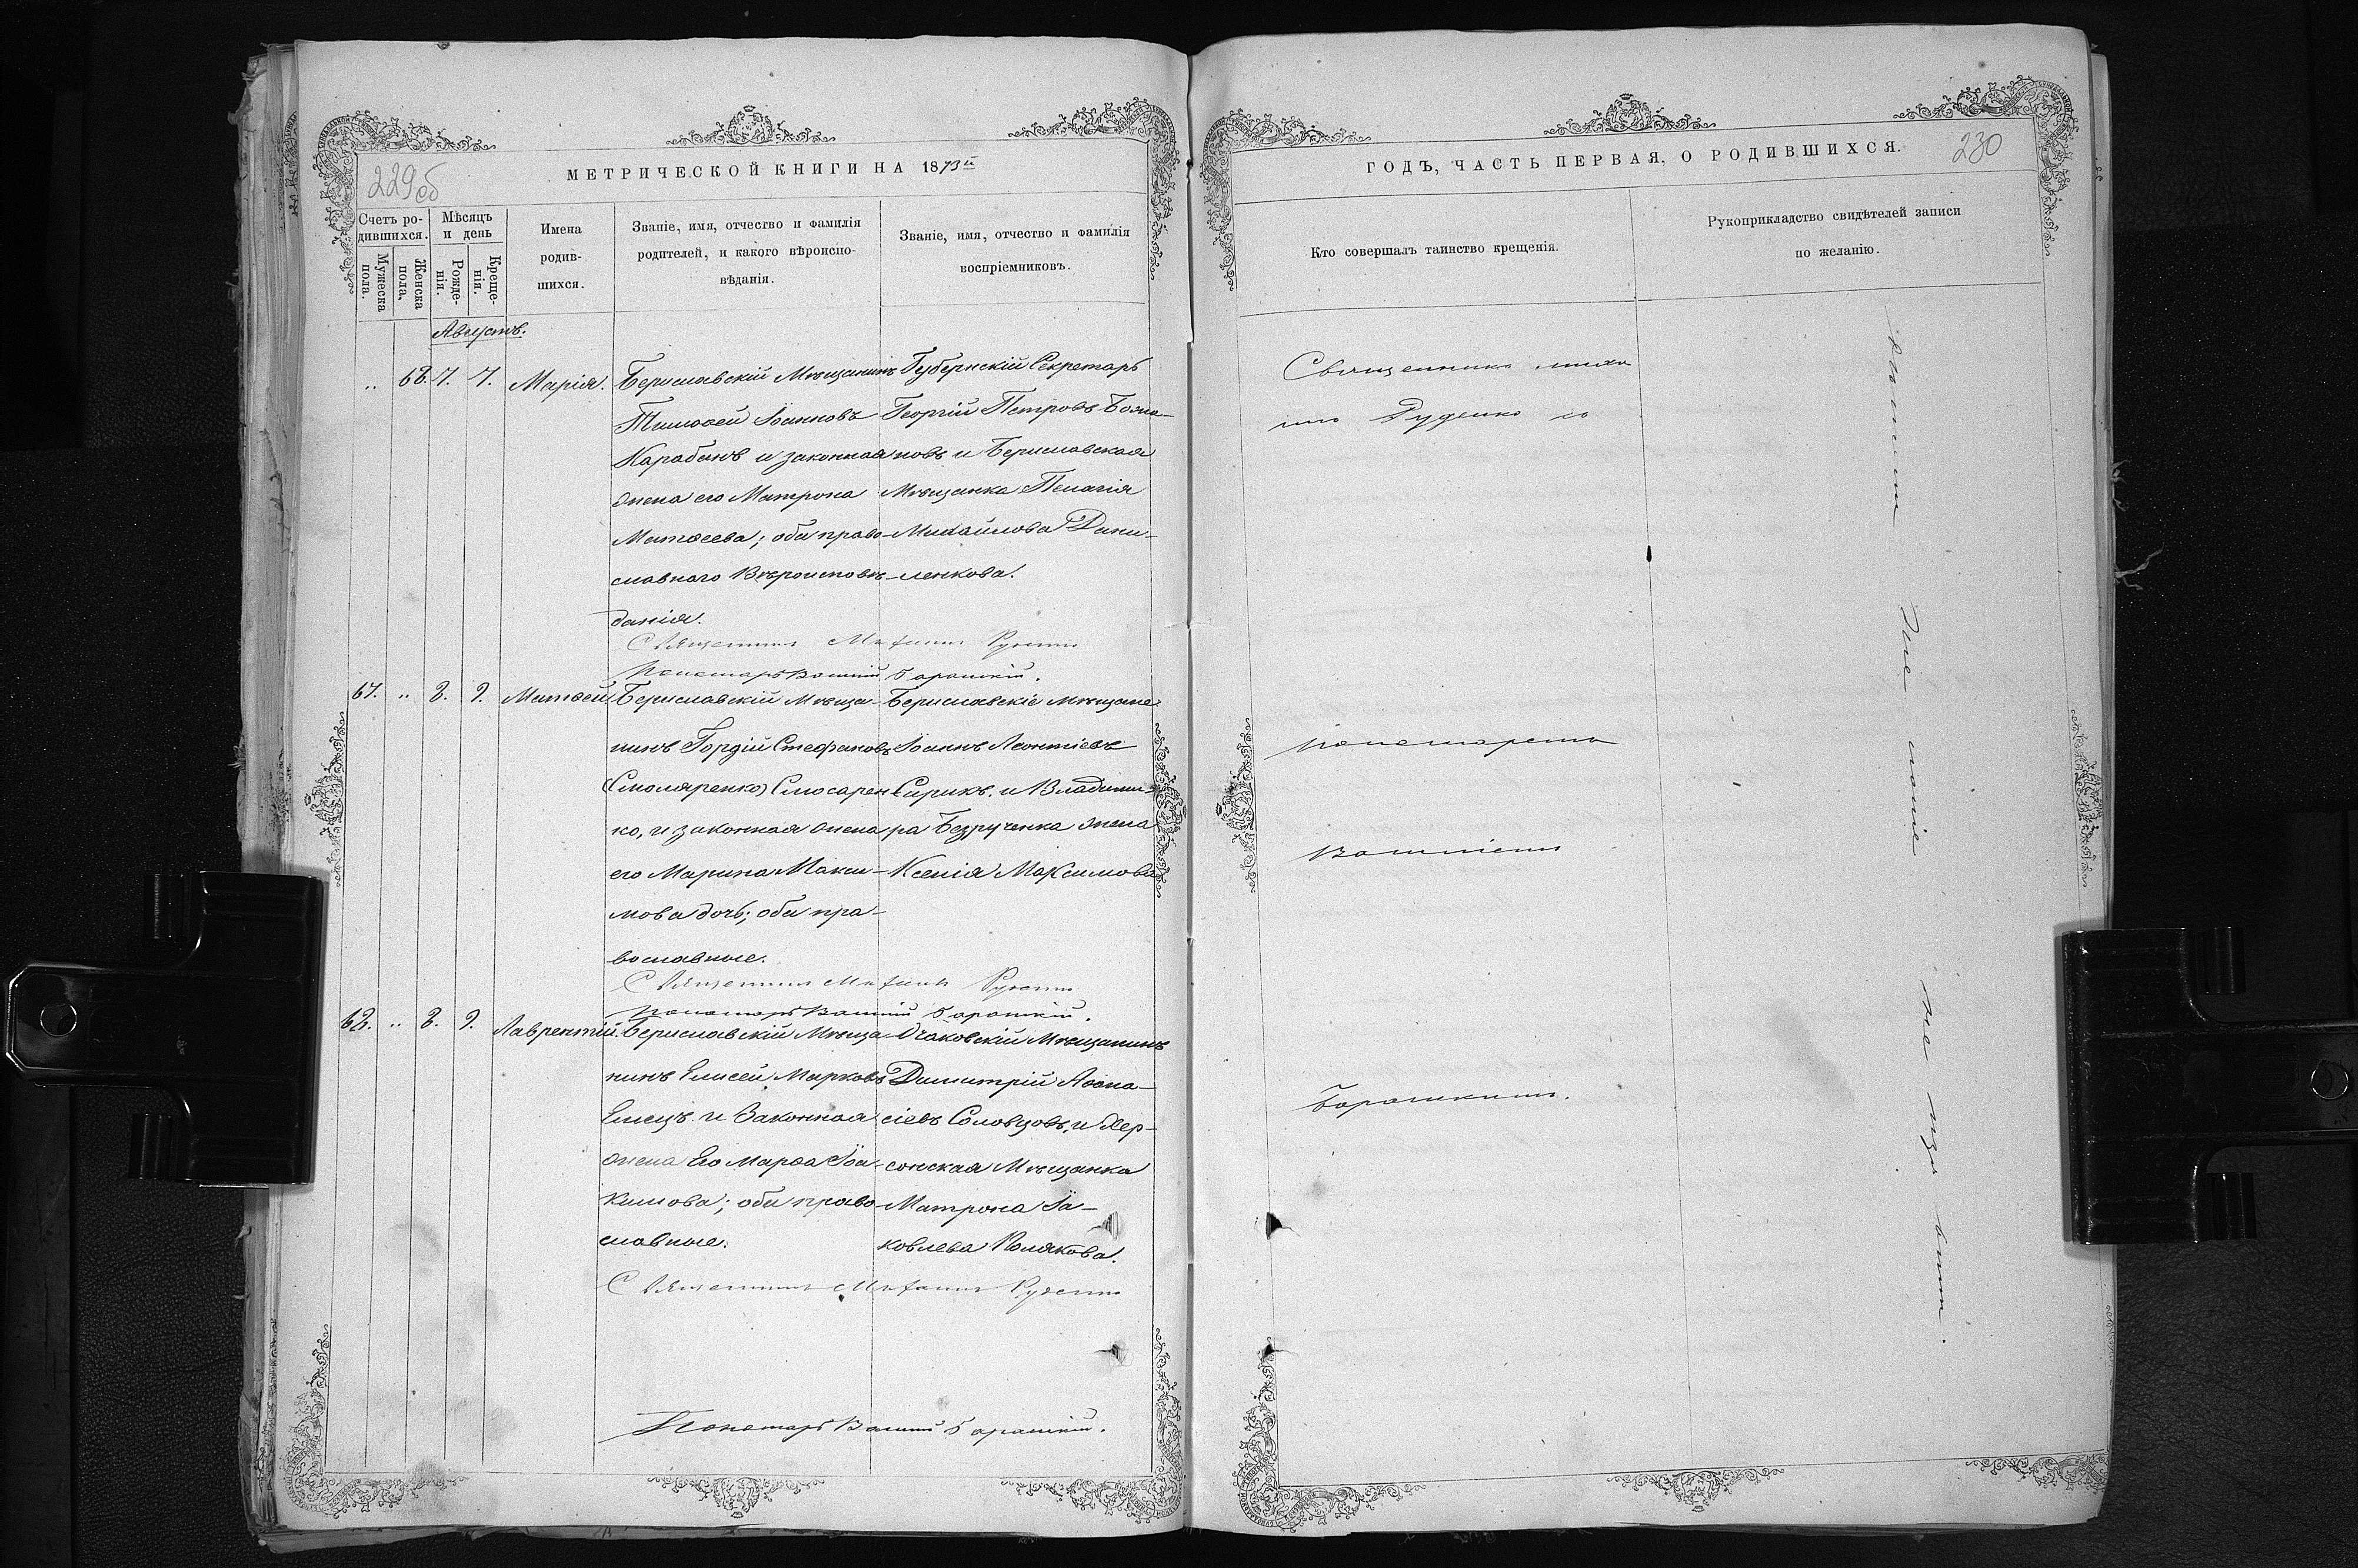 229об
МЕТРИЧЕСКОЙ КНИГИ НА 1873й
Счетъ ро-
дившихся.
Мужеска
пола.
Женска
пола.
Мѣсяцъ
и день
Рожде-
нія.
Креще-
нія.
Имена
родив-
шихся.
Званіе, имя, отчество и фамилія
родителей, и какого вѣроиспо-
вѣданія.
Званіе, имя, отчество и фамилія
воспріемниковъ.
Августъ.
„ 68. 7. 7. Марія.
Бериславскій Мѣщанинъ
Тимоѳей Іоанновъ
Карабанъ и законная
жена его Матрона
Матѳеева; оба право-
славнаго Вѣроисповѣ-
данія.
Губернскій Секретарь
Георгій Петровъ
новъ и Бериславская
Мѣщанка Пелагія
Михайлова Дани-
ленкова.
Священникъ Михаилъ Руденко
Пономарь
67. „ 8. 9. Матѳей.
Бериславскій Мѣща-
нинъ Гордій Стефановъ
(Смоляренко) Слюсарен-
ко, и законная жена
его Марина Макси-
мова дочь; оба пра-
вославные.
Бериславскіе мѣщане
Іоаннъ Леонтіевъ
Сирикъ и Владими-
ра Безрученка жена
Ксенія Максимова
Священникъ Михаилъ Руденко
Пономарь
68. „ 8. 9. Лаврентій.
Бериславскій Мѣща-
нинъ Елисей Марковъ
Елецъ и Законная
жена Его Марѳа Іоа-
кимова; оба право-
славные.
Очаковскій Мѣщанинъ
Димитрій Аѳана-
сіевъ Соловцовъ, и Хер-
сонская Мѣщанка
Матрона Іа-
ковлева Полякова.
Священникъ Михаилъ Руденко
Пономарь
ГОДЪ, ЧАСТЬ ПЕРВАЯ, О РОДИВШИХСЯ.
230
Кто совершалъ таинство крещенія.
Рукоприкладство свидѣтелей записи
по желанію.
Священникъ Миха
илъ Руденко съ
пономаремъ